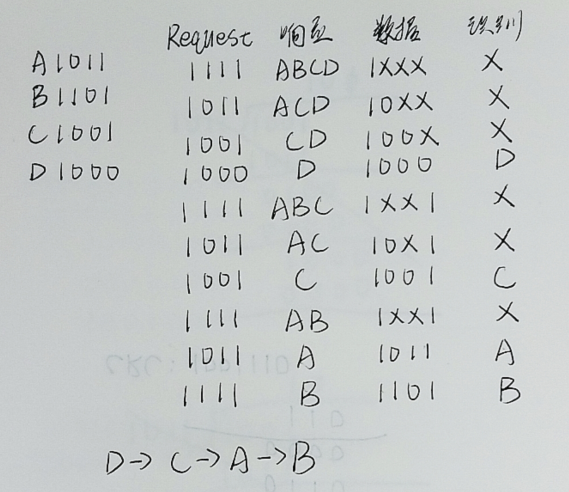 Request 响应 数据 识别
A 1011 1111 ABCD 1XXX X
B 1101 1011 ACD 10XX X
C 1001 1001 CD 100X X
D 1000 1000 D 1000 D
1111 ABC 1XX1 X
1011 AC 10X1 X
1001 C 1001 C
1111 AB 1XX1 X
1011 A 1011 A
1111 B 1101 B
D→ C→A→B